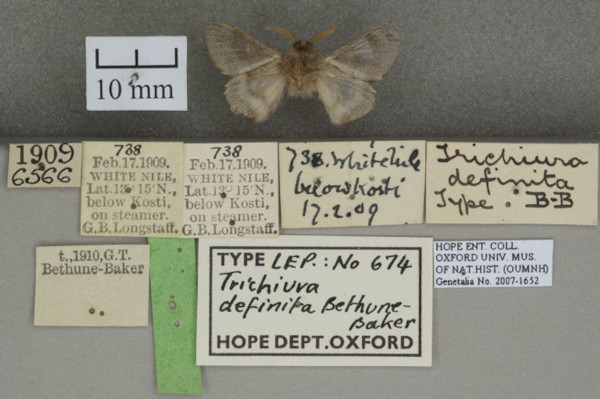 10 mm
1909
6566
738
Feb.17.1909.
WHITE NILE,
Lat.13° 15'N.,
below Kosti,
on steamer.
G.B.Longstaff.
738
Feb.17.1909.
WHITE NILE,
Lat.13° 15'N.,
below Kosti,
on steamer.
G.B.Longstaff.
738. White Nile
below Kosti
17.2.09
Trichiura
definita
Type. B-B
t.,1910,G.T.
Bethune-Baker
TYPE LEP.: No 674
Trichiura
definita Bethune-
Baker
HOPE DEPT.OXFORD
HOPE ENT. COLL.
OXFORD UNIV. MUS.
OF NAT.HIST. (OUMNH)
Genetalia No. 2007-1652